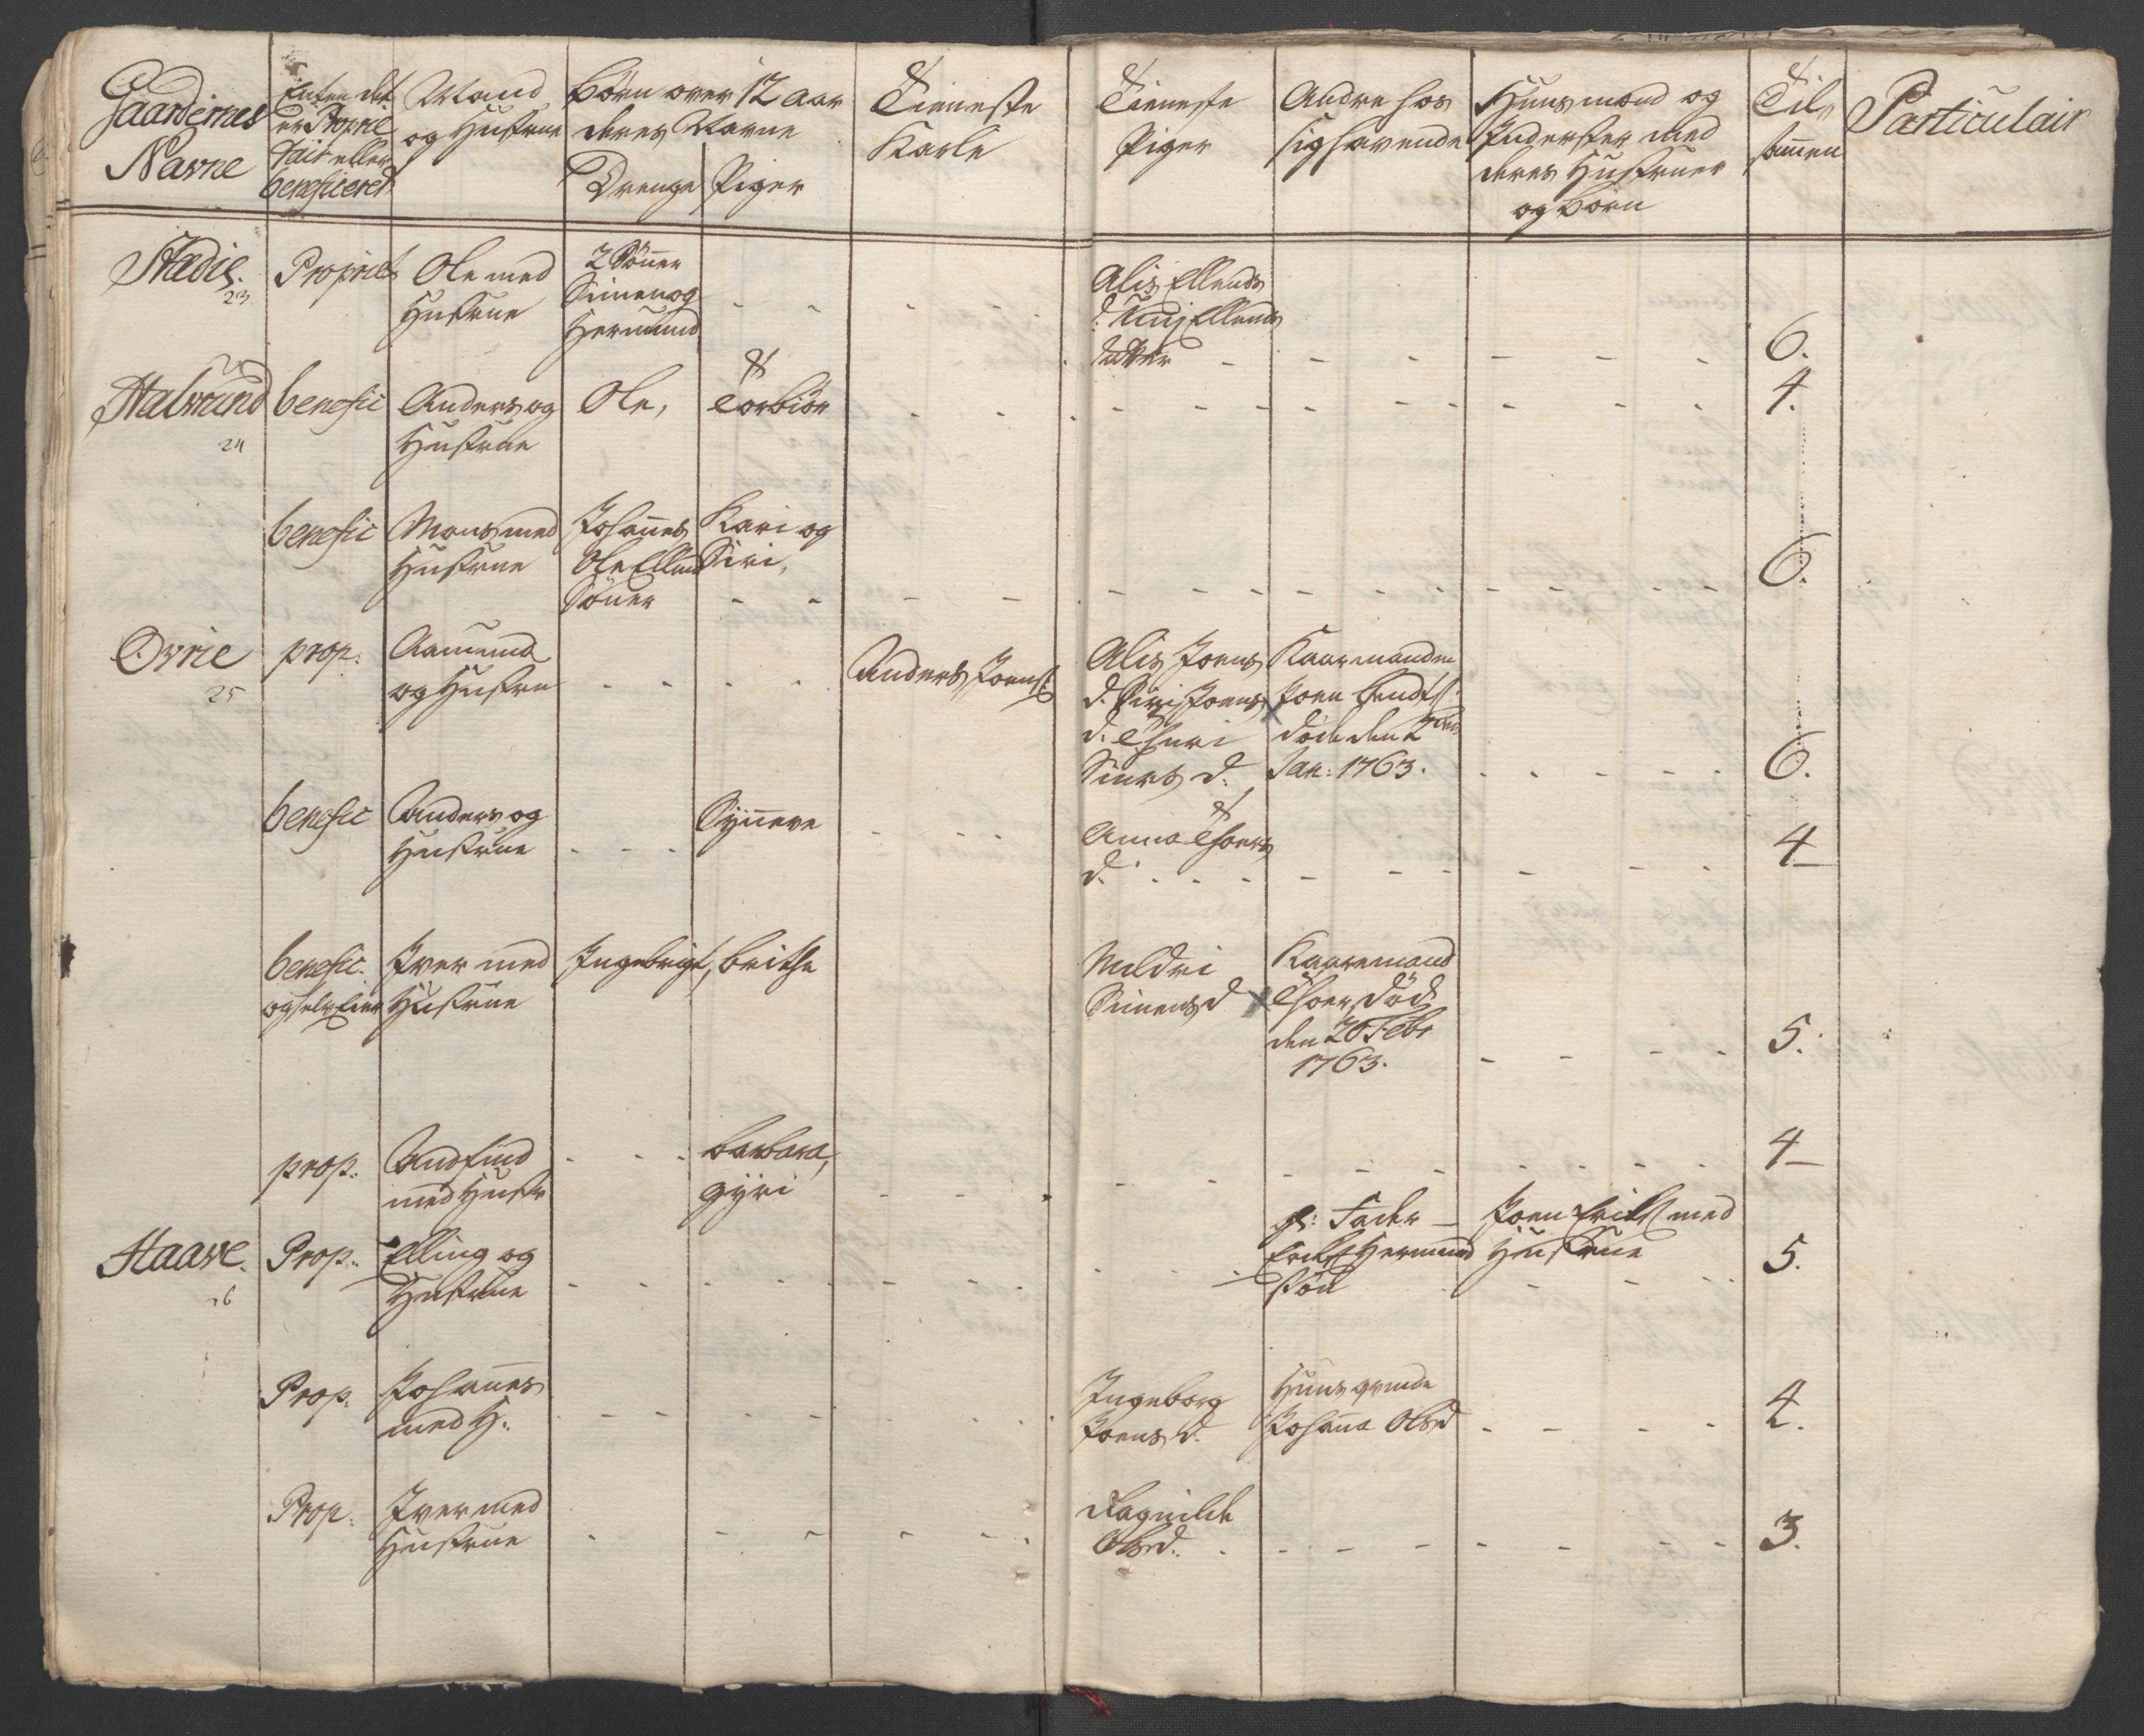 Gaardernes
Navne
Enten det
er Proprie
tair eller
beneficered
Mand
og Hustrue
Børn over 12 aar
deres Navne
Drenge Piger
Tieneste
Karle
Tieneste
Piger
Andre hos
sig havende
Huusmænd og
Inderster med
deres Hustruer
og Børn
Til,
sammen
Particulair
Stadie.
23
Propriet
Ole med
Hustrue
2 Sønner
Simen og
Hermund
- - - -
Alis Ellends
d: Ellends
datter - - - - - -
6.
Halvrund
24
benefic
Anders og
Hustrue
Ole,
Torbiør
- - - - - - - - - -
4.
benefic
Mons med
Hustrue
Johannes
Ole Ellend
Sønner
Kari og
Siri,
- - - - - - - - - -
6.
Ovrie
25
prop:
Aamund
og Hustru
- - - -
Anders Joens:
Alis Joens
d. Siri Joens
d. Thuri
Simens d.
Kaarmanden
Joen
døde den 2den
Jan: 1763.
- - - - -
6.
benefic
Anders og
Hustrue
- - -
Synneve
- - -
Anna Thoers
d. - - - - - - -
4 -
benefic.
og selv Eier
Iver med
Hustrue
Ingebrigt,
Brithe
Mildri
Simens d
Kaarmand
Thoer død
den 26 Febr
1763.
- - - -
5.
prop:
Andfind
med Hustr
- - -
Barbara,
gyri
- - - - - - - -
4 -
Haave.
26
Prop:
Elling og
Hustrue
- - - - - - - -
gl: Fader -
Erik Hermund
søn
Joen Eriks: med
Hustrue
- - -
5.
Prop.
Johannes
med H:
- - - - - -
Ingeborg
Joens d.
Huusqvinde
Johanna Olsd
- - - -
4.
Prop.
Iver med
Hustrue
- - - - -
Ragnilde
Olsd. - - - - - - - -
3.